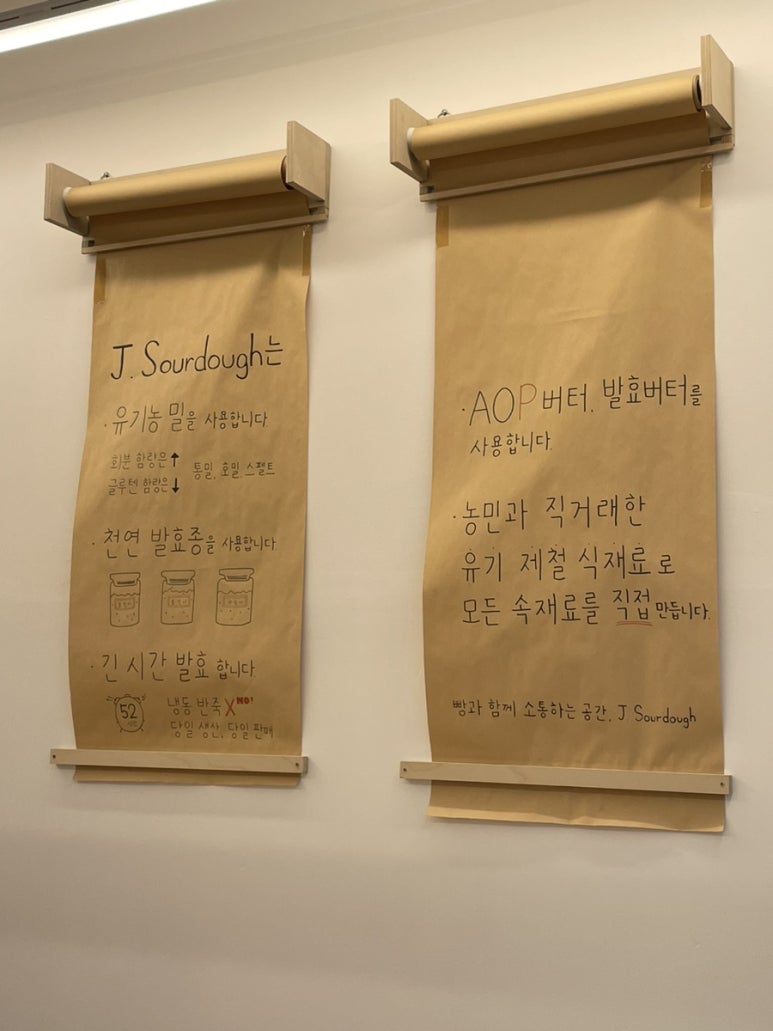 J. Sourdough는
· 유기농 밀을 사용합니다.
회분 함량은 ↑
글루텐 함량은 ↓
통밀, 호밀, 스펠트
· 천연 발효종을 사용합니다.
· 긴 시간 발효 합니다.
52
시간
냉동 반죽 X NO!
당일 생산, 당일 판매
· AOP 버터, 발효버터를
사용합니다.
· 농민과 직거래한
유기 제철 식재료로
모든 속재료를 직접 만듭니다.
빵과 함께 소통하는 공간, J. Sourdough